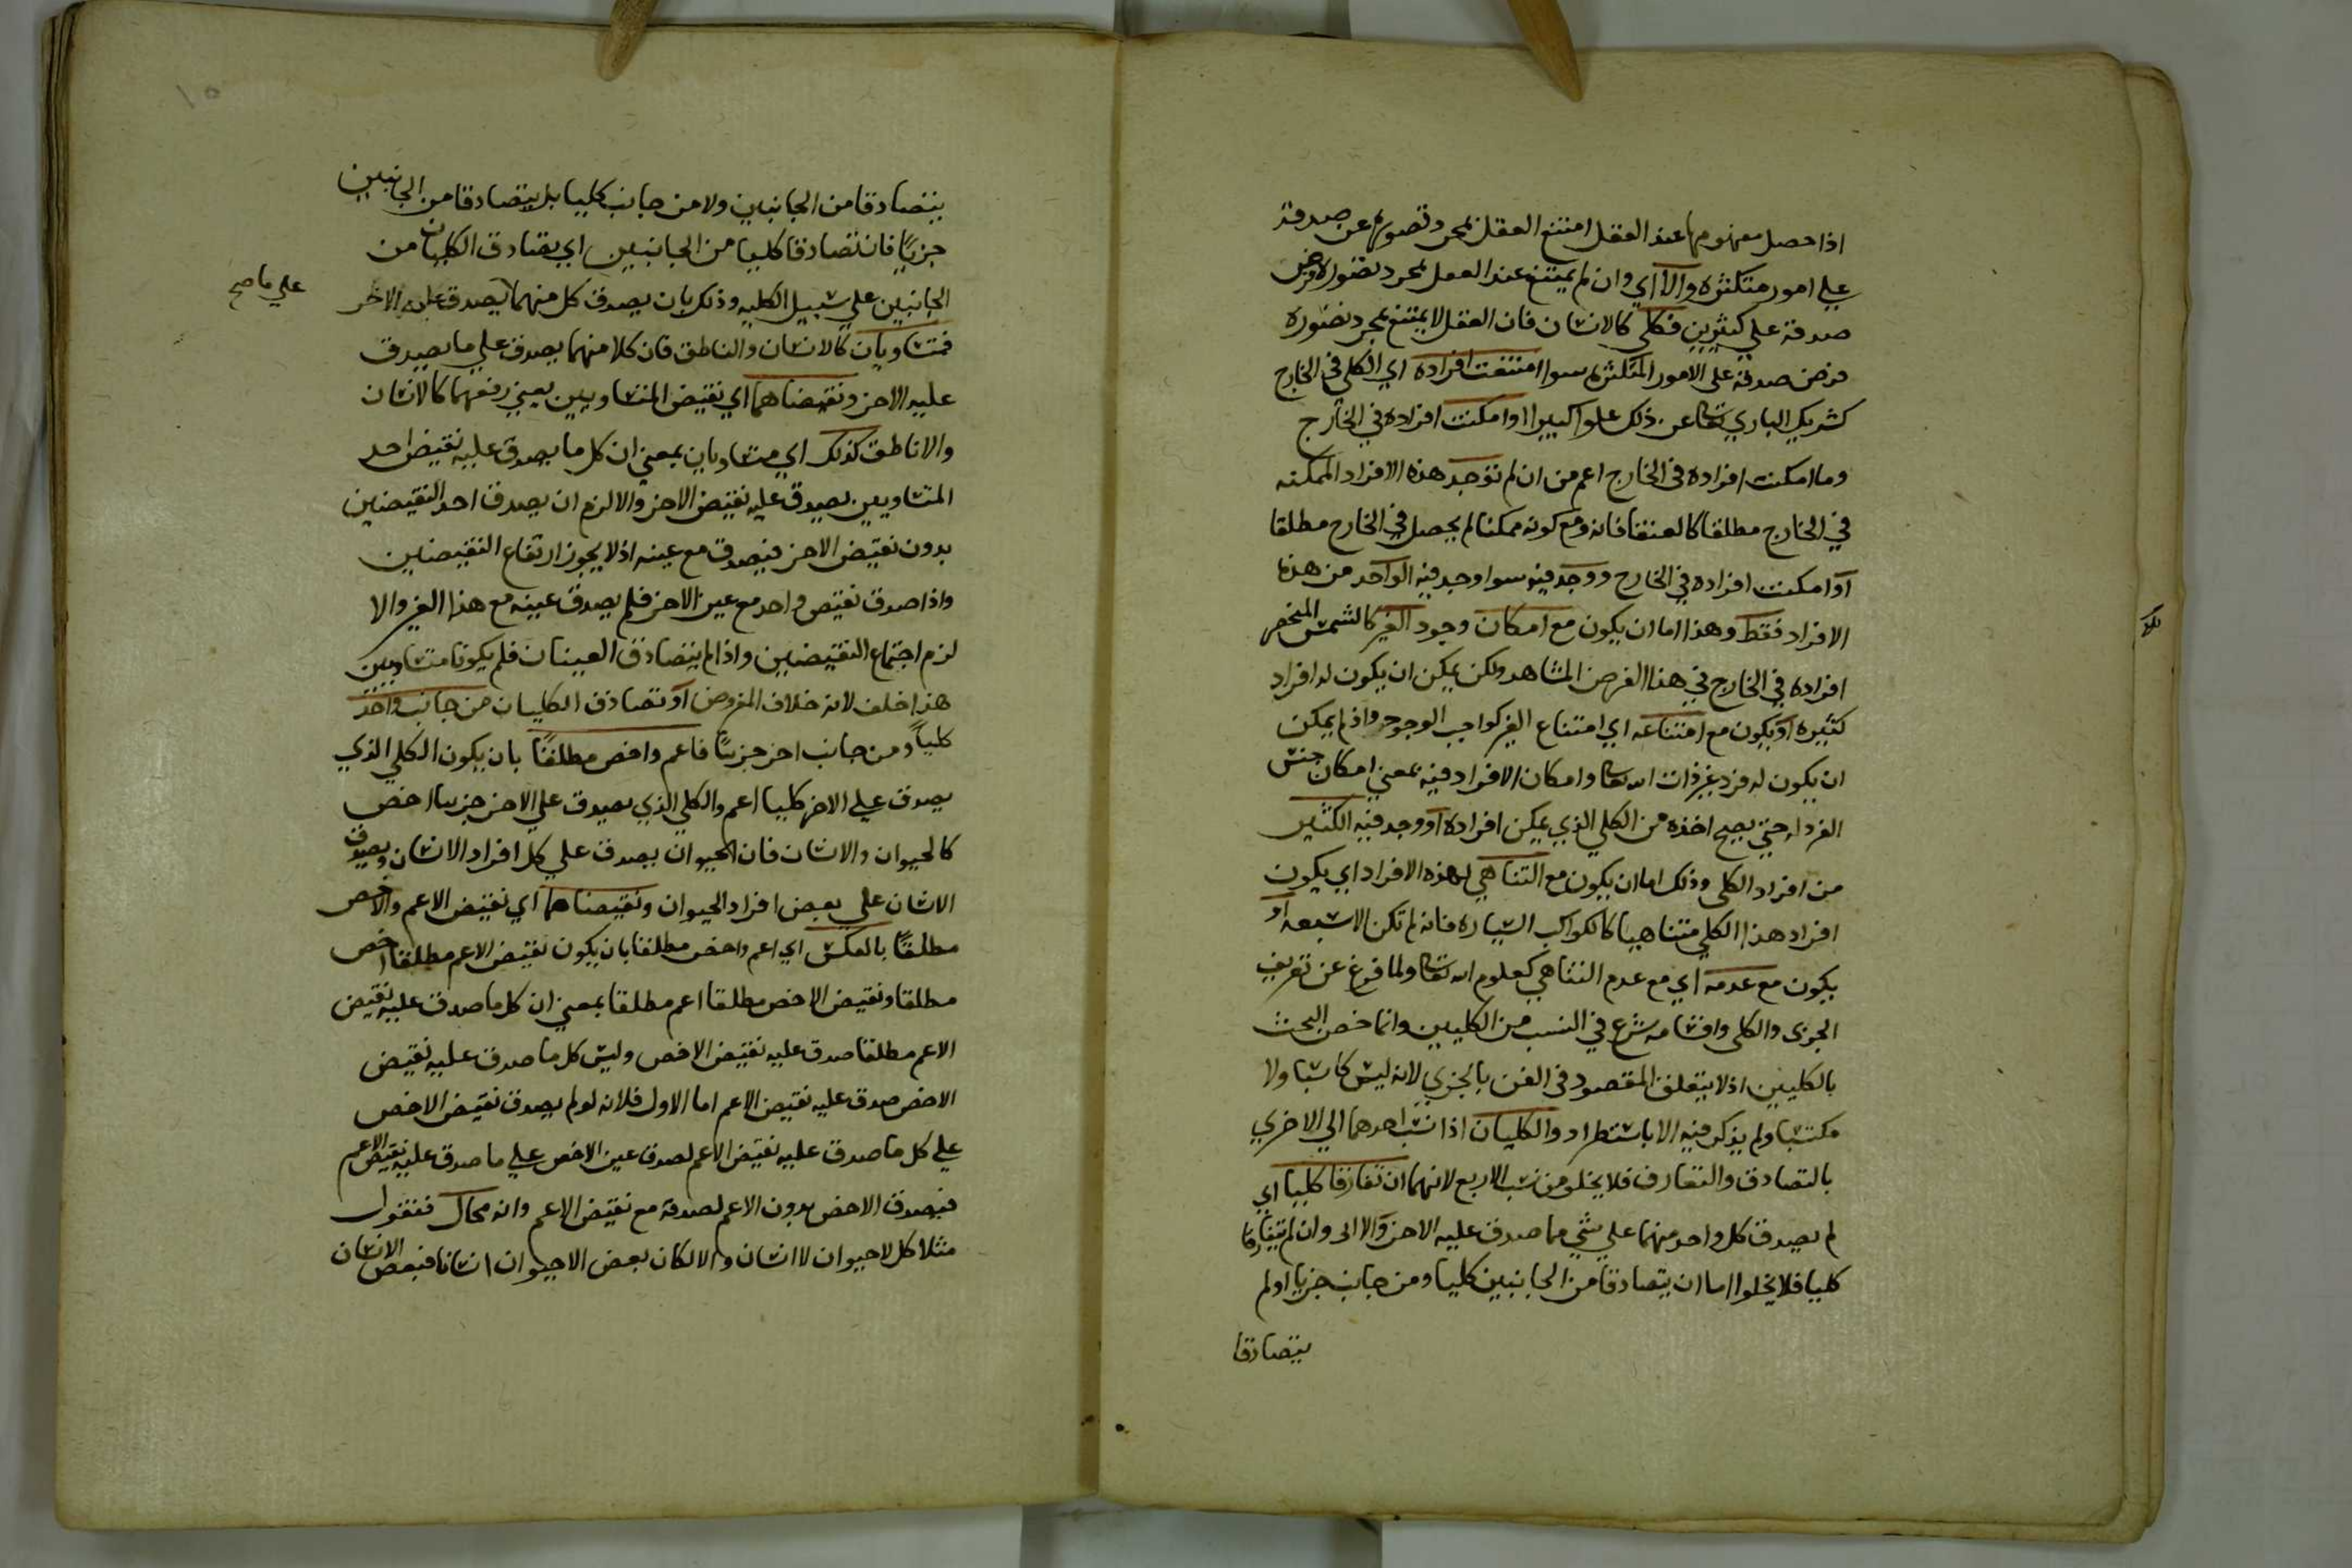 اذا حصل مفهومها عند العقل امتنع العقل بمجرد تصورها عن صدقه
علي امور متكثره والا اي وان لم يمتنع عند العقل بمجرد تصوره فرض
صدقه علي كثيرين فكلي كالانسان فان العقل لا يمتنع بمجرد تصوره
فرض صدقه علي الامور المتكثره سوا امتنعت افراده اي الكلي في الخارج
كشريك الباري تعا عن ذلك علوا كبيرا او امكنت افراده في الخارج
وما امكنت افراده في الخارج اعم من ان لم توجد هذه الافراد الممكنه
في الخارج مطلقا كالعنقا فانه ومع كونه ممكنا لم يحصل في الخارج مطلقا
او امكنت افراده في الخارج ووجد فيه سوا وجد فيه الواحد من هذه
الافراد فقط وهذا اما ان يكون مع امكان وجود الغير كالشمس المنحصر
افراده في الخارج في هذا الفرض المشاهد ولكن يمكن ان يكون له افراد
كثيره او يكون مع امتناعه اي امتناع الغير كواجب الوجود واذ لم يمكن
ان يكون له فرد غير ذات الله تعا وامكان الافراد فيه بمعني امكان جنس
الفرد له حتي يصح اخذه من الكلي الذي يمكن افراده او وجد فيه الكثير
من افراد الكلي وذلك اما ان يكون مع التناهي لهذه الافراد اي يكون
افراد هذا الكلي متناهيا كالكواكب السياره فانه لم تكن الا سبعه او
يكون مع عدمه اي مع عدم التناهي كعلوم الله تعا ولما فرغ عن تعريف
الجزي والكلي واقسامه شرع في النسب من الكليين وانما خص البحث
بالكليين اذ لا يتعلق المقصود في الفن بالجزي لانه ليس كاسبا ولا
مكتسبا ولم يذكر فيه الا باستطراد والكليان اذا نسب احدهما الي الاخري
بالتصادق والتفارق فلا يخلو من نسب الاربع لانهما ان تفارقا كليا اي
لم يصدق كل واحد منهما علي شي مما صدق عليه الاخر والا اي وان لم يتفارقا
كليا فلا يخلوا اما ان يتصادقا من الجانبين كليا ومن جانب جزيا او لم
يتصادقا
يتصادقا من الجانبين ولا من جانب كليا بل يتصادقا من الجانبين
جزيًا فان تصادقا كليا من الجانبين اي يصادق الكليان من
الجانبين علي سبيل الكليه وذلك بان يصدق كل منهما يصدق عليه الاخر
علي ما صح
فمتساويان كالانسان والناطق فان كلا منهما يصدق علي ما يصدق
عليه الاخر ونقيضاهما اي نقيض المتساويين يعني رفعهما كالانسان
والاناطق كذلك اي متساويان بمعني ان كل ما يصدق عليه نقيض احد
المتساويين يصدق عليه نقيض الاخر والا لزم ان يصدق احد النقيضين
بدون نقيض الاخر فيصدق مع عينه اذ لا يجوز ارتفاع النقيضين
واذا صدق نقيض واحد مع عين الاخر فلم يصدق عينه مع هذا الغير والا
لزم اجتماع النقيضين واذا لم يتصادق العينان فلم يكونا متساويين
هذا خلف لانه خلاف المفروض او تصادق الكليان من جانب واحد
كلياً ومن جانب اخر جزيًا فاعم واخص مطلقًا بان يكون الكلي الذي
يصدق علي الاخر كليا اعم والكلي الذي يصدق علي الاخر جزيا اخص
كالحيوان والانسان فان الحيوان يصدق علي كل افراد الانسان ويصدق
الانسان علي بعض افراد الحيوان ونقيضاهما اي نقيض الاعم والاخص
مطلقًا بالعكس اي اعم واخص مطلقا بان يكون نقيض الاعم مطلقا اخص
مطلقا ونقيض الاخص مطلقا اعم مطلقا بمعني ان كل ما صدق عليه نقيض
الاعم مطلقا صدق عليه نقيض الاخص وليس كل ما صدق عليه نقيض
الاخص صدق عليه نقيض الاعم اما الاول فلانه لو لم يصدق نقيض الاخص
علي كل ما صدق عليه نقيض الاعم لصدق عين الاخص علي ما صدق عليه نقيض الاعم
فيصدق الاخص بدون الاعم لصدقه مع نقيض الاعم وانه محال فنقول
مثلا كل لاحيوان لاانسان والا لكان بعض الاحيوان انسانا فبعض الانسان